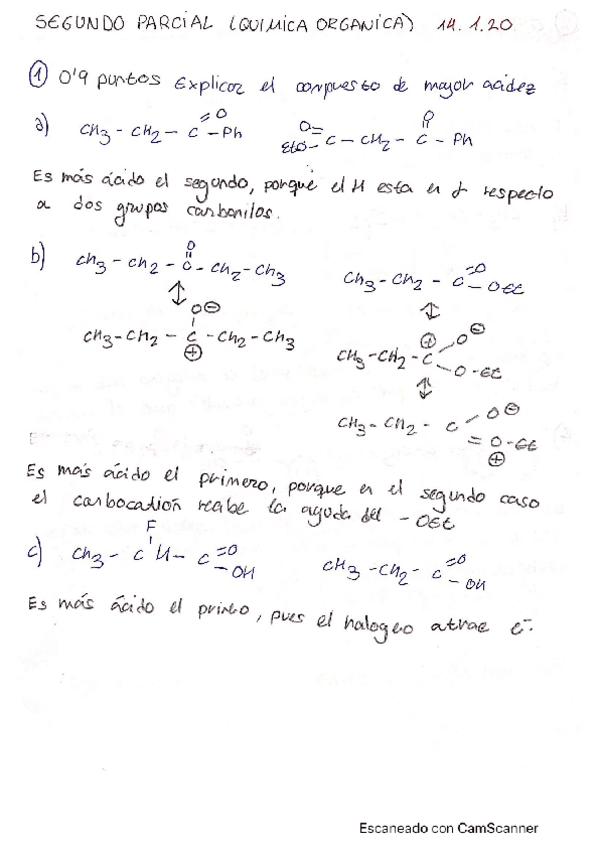 SEGUNDO PARCIAL (QUIMICA ORGANICA) 14.1.20
① 0'9 puntos Explicar el compuesto de mayor acidez
a) CH3 - CH2 - C =O - Ph    O= EtO- C - CH2 - C - Ph
O
Es más ácido el segundo, porque el H esta en α respecto
a dos grupos carbonilos.
b) CH3 - CH2 - C - CH2 - CH3    CH3 - CH2 - C =O - OEt
O
O⊖
CH3-CH2 - C - CH2 - CH3
⊕
CH3 - CH2 - C ⊕ - O ⊖ - O - Et
CH3 - CH2 - C - O ⊖ = O - Et
⊕
Es más ácido el primero, porque en el segundo caso
el carbocatión recibe la ayuda del - OEt
F
c) CH3 - C H - C =O - OH    CH3 - CH2 - C =O - OH
Es más ácido el primero, pues el halogeo atrae e-.
Escaneado con CamScanner